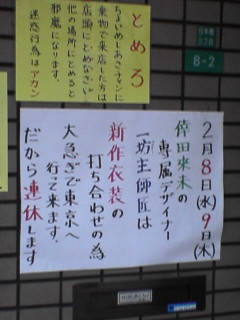 とめろ
ちょいめしあさチャンに
乗物で来店した方は
店頭にとめなさい
他の場所にとめると
邪魔になります。
迷惑行為はアカン
8-2
2月8日(水)9日(木)
倖田來未の
専属デザイナー
一坊主師匠は
新作衣装の
打ち合わせの為
大急ぎで東京へ
行って来ます。
だから連休します